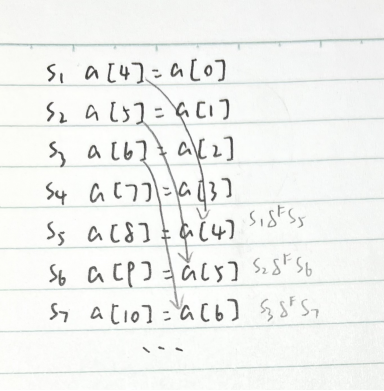 S1 a[4] = a[0]
S2 a[5] = a[1]
S3 a[6] = a[2]
S4 a[7] = a[3]
S5 a[8] = a[4] S1 δF S5
S6 a[9] = a[5] S2 δF S6
S7 a[10] = a[6] S3 δF S7
...